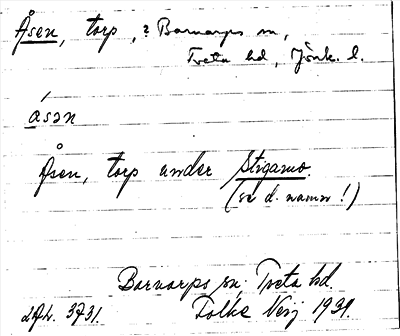 Åsen, torp, ? Barnarps sn,
Tveta hd, Jönk. l.
åsən
Åsen, torp under Stigamo.
(se d. namn!)
Barnarps sn. Tveta hd.
Folke 1931.
3731.